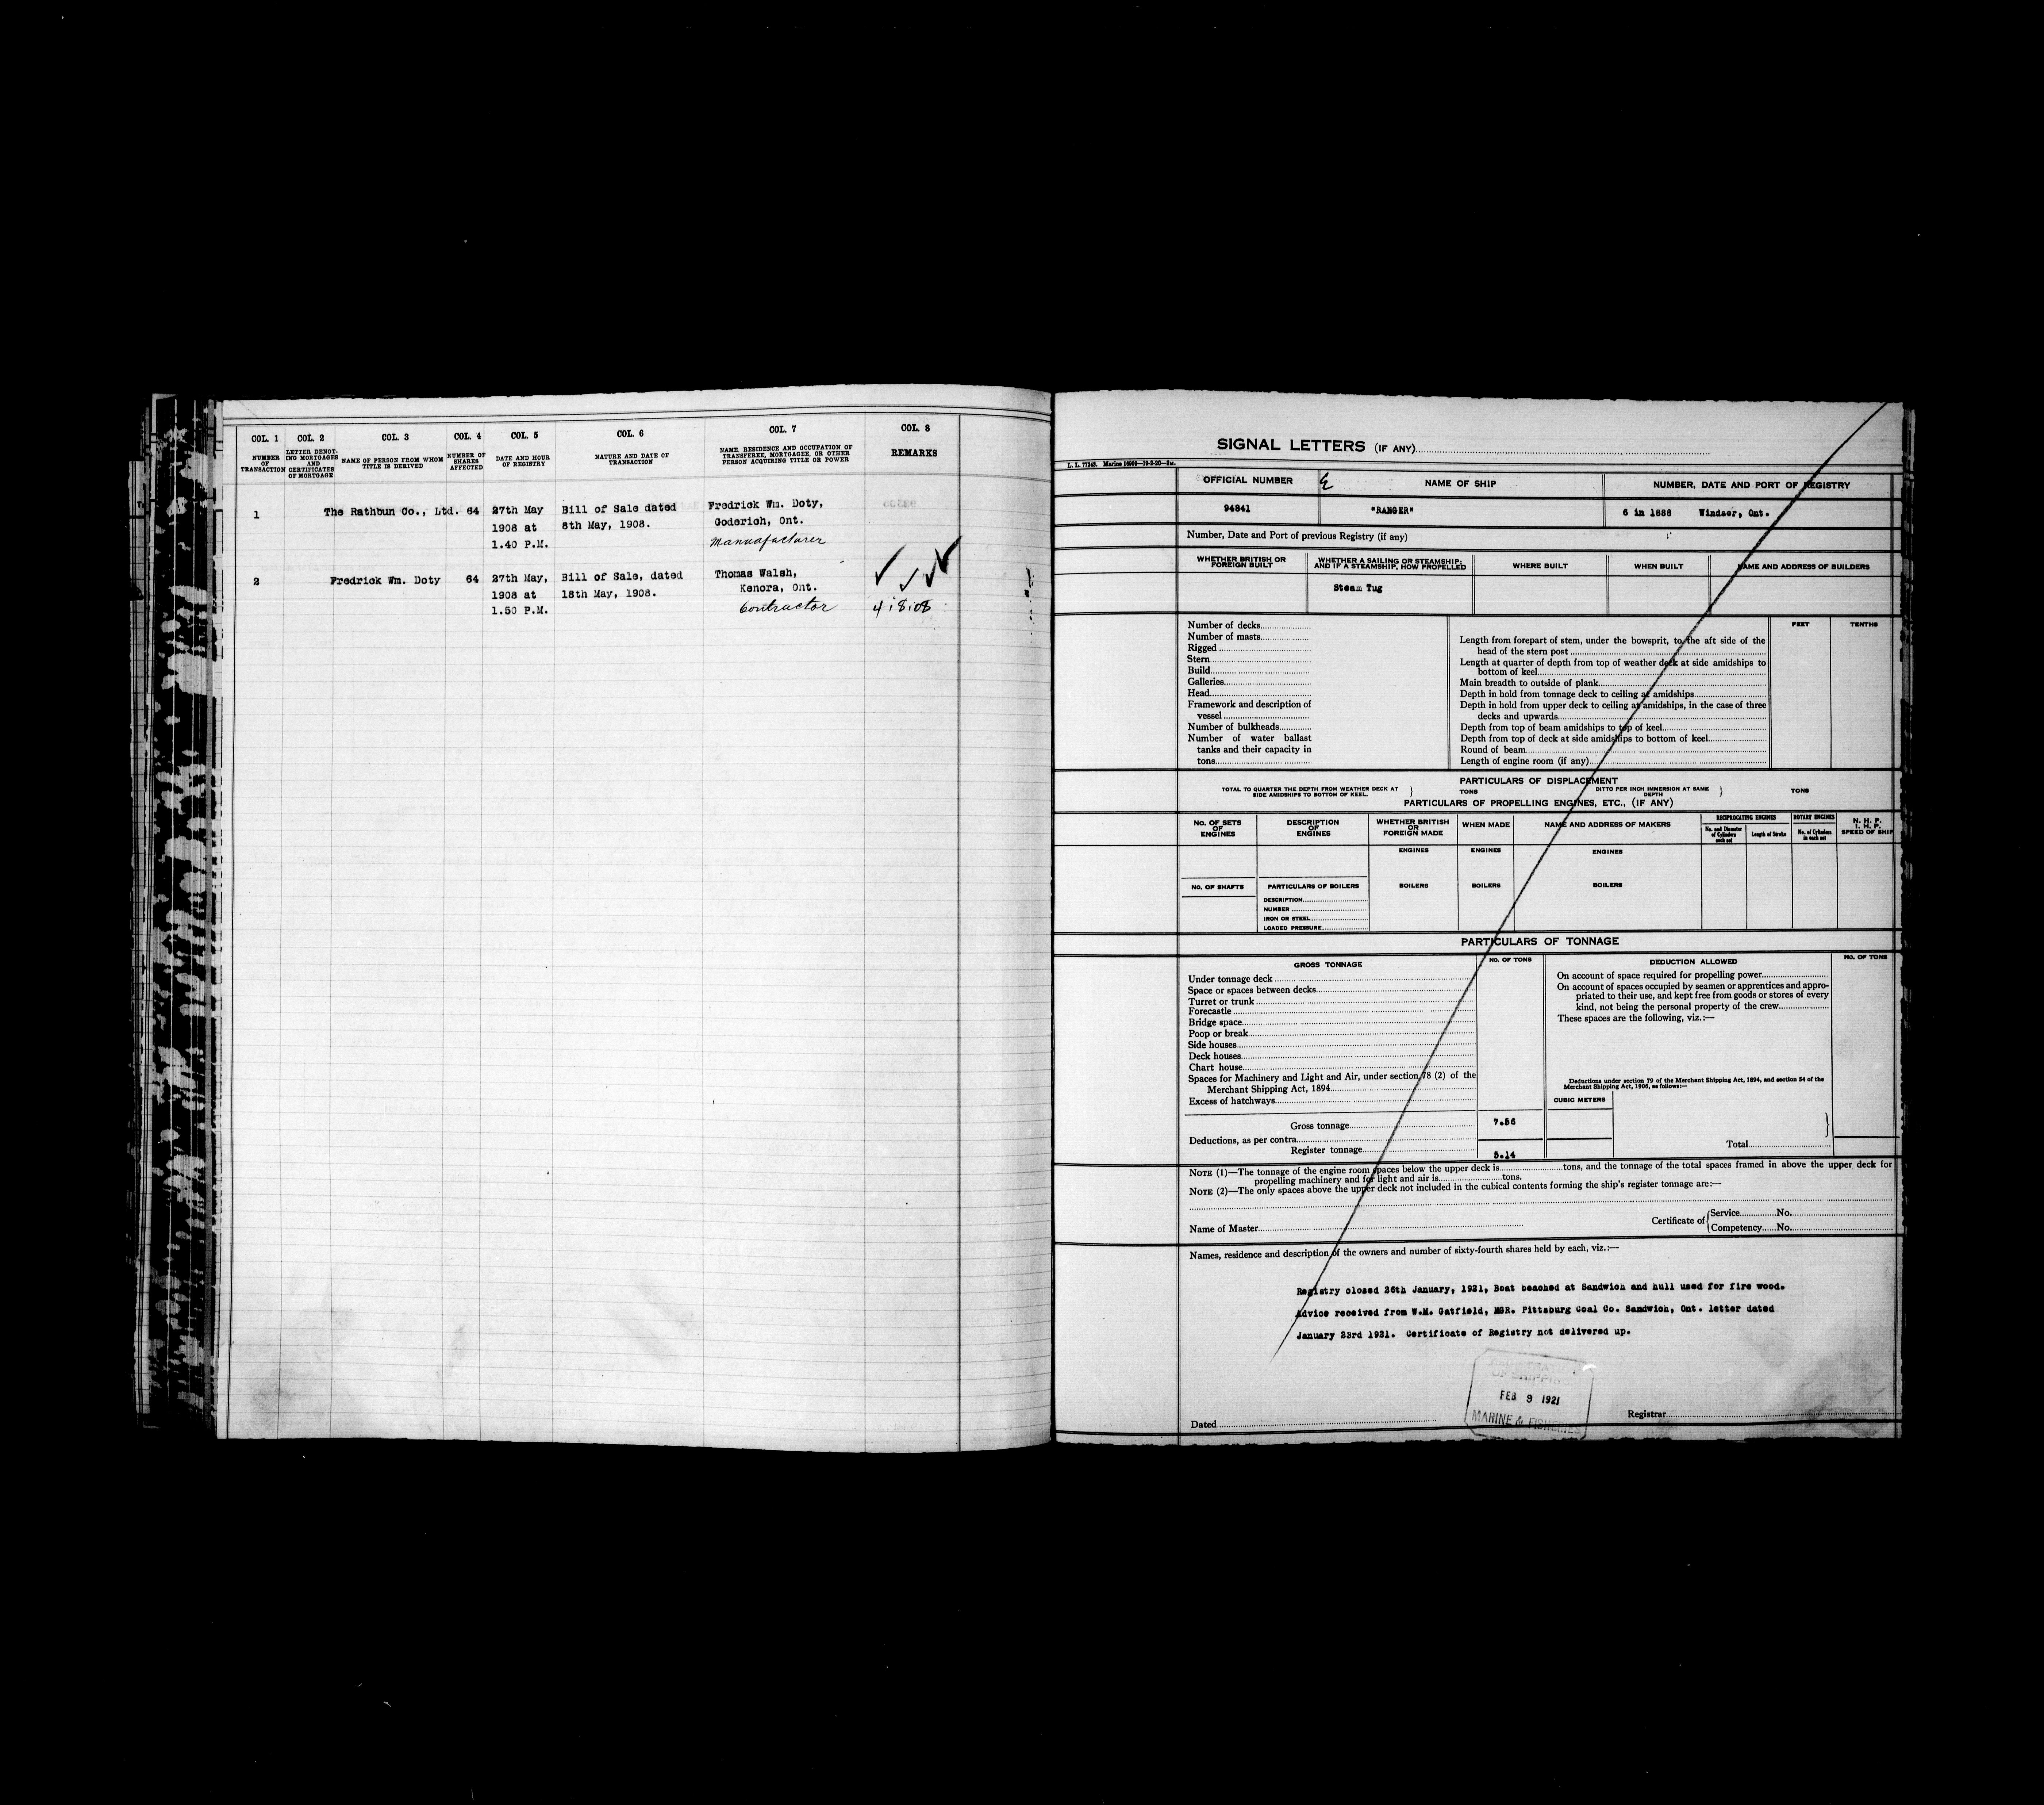 COL. 1 COL. 2 COL. 3 COL. 4 COL. 5 COL. 6 COL. 7 COL. 8
NUMBER OF TRANSACTION
LETTER DENOTING MORTGAGES AND CERTIFICATES OF MORTGAGE
NAME OF PERSON FROM WHOM TITLE IS DERIVED
NUMBER OF SHARES AFFECTED
DATE AND HOUR OF REGISTRY
NATURE AND DATE OF TRANSACTION
NAME, RESIDENCE AND OCCUPATION OF TRANSFEREE, MORTGAGEE, OR OTHER PERSON ACQUIRING TITLE OR POWER
REMARKS
1 The Rathbun Co., Ltd. 64 27th May Bill of Sale dated Fredrick Wm. Doty,
1908 at 8th May, 1908. Goderich, Ont.
1.40 P.M. Manufacturer
2 Fredrick Wm. Doty 64 27th May, Bill of Sale, dated Thomas Walsh,
1908 at 18th May, 1908. Kenora, Ont.
1.50 P.M. Contractor 4:8:08
SIGNAL LETTERS (IF ANY)
L. L. 77243. Marine 16000—19-3-20—2M.
OFFICIAL NUMBER NAME OF SHIP NUMBER, DATE AND PORT OF REGISTRY
94841 "RANGER" 6 in 1888 Windsor, Ont.
Number, Date and Port of previous Registry (if any)
WHETHER BRITISH OR FOREIGN BUILT
WHETHER A SAILING OR STEAMSHIP; AND IF A STEAMSHIP, HOW PROPELLED
WHERE BUILT
WHEN BUILT
NAME AND ADDRESS OF BUILDERS
Steam Tug
Number of decks
Number of masts
Rigged
Stern
Build
Galleries
Head
Framework and description of
vessel
Number of bulkheads
Number of water ballast
tanks and their capacity in
tons
FEET TENTHS
Length from forepart of stem, under the bowsprit, to the aft side of the
head of the stern post
Length at quarter of depth from top of weather deck at side amidships to
bottom of keel
Main breadth to outside of plank
Depth in hold from tonnage deck to ceiling at amidships
Depth in hold from upper deck to ceiling at amidships, in the case of three
decks and upwards
Depth from top of beam amidships to top of keel
Depth from top of deck at side amidships to bottom of keel
Round of beam
Length of engine room (if any)
PARTICULARS OF DISPLACEMENT
TOTAL TO QUARTER THE DEPTH FROM WEATHER DECK AT SIDE AMIDSHIPS TO BOTTOM OF KEEL. } TONS DITTO PER INCH IMMERSION AT SAME DEPTH } TONS
PARTICULARS OF PROPELLING ENGINES, ETC., (IF ANY)
NO. OF SETS OF ENGINES
DESCRIPTION OF ENGINES
WHETHER BRITISH OR FOREIGN MADE
WHEN MADE
NAME AND ADDRESS OF MAKERS
RECIPROCATING ENGINES
No. and Diameter of Cylinders each set
Length of Stroke
ROTARY ENGINES
No. of Cylinders in each set
N. H. P.
I. H. P.
SPEED OF SHIP
ENGINES ENGINES ENGINES
NO. OF SHAFTS PARTICULARS OF BOILERS BOILERS BOILERS BOILERS
DESCRIPTION
NUMBER
IRON OR STEEL
LOADED PRESSURE
PARTICULARS OF TONNAGE
GROSS TONNAGE NO. OF TONS DEDUCTION ALLOWED NO. OF TONS
Under tonnage deck
Space or spaces between decks
Turret or trunk
Forecastle
Bridge space
Poop or break
Side houses
Deck houses
Chart house
Spaces for Machinery and Light and Air, under section 78 (2) of the
Merchant Shipping Act, 1894
Excess of hatchways
Gross tonnage 7.56
Deductions, as per contra
Register tonnage 5.14
On account of space required for propelling power
On account of spaces occupied by seamen or apprentices and appro-
priated to their use, and kept free from goods or stores of every
kind, not being the personal property of the crew
These spaces are the following, viz.:—
Deductions under section 79 of the Merchant Shipping Act, 1894, and section 54 of the
Merchant Shipping Act, 1906, as follows:—
CUBIC METERS
Total
NOTE (1)—The tonnage of the engine room spaces below the upper deck is tons, and the tonnage of the total spaces framed in above the upper deck for
propelling machinery and for light and air is tons.
NOTE (2)—The only spaces above the upper deck not included in the cubical contents forming the ship's register tonnage are:—
Name of Master Certificate of { Service No.
Competency No.
Names, residence and description of the owners and number of sixty-fourth shares held by each, viz.:—
Registry closed 26th January, 1921, Boat beached at Sandwich and hull used for fire wood.
Advice received from W.M. Gatfield, MGR. Pittsburg Coal Co. Sandwich, Ont. letter dated
January 23rd 1921. Certificate of Registry not delivered up.
OF SHIPPING
FEB 9 1921
MARINE & FISHERIES
Dated Registrar